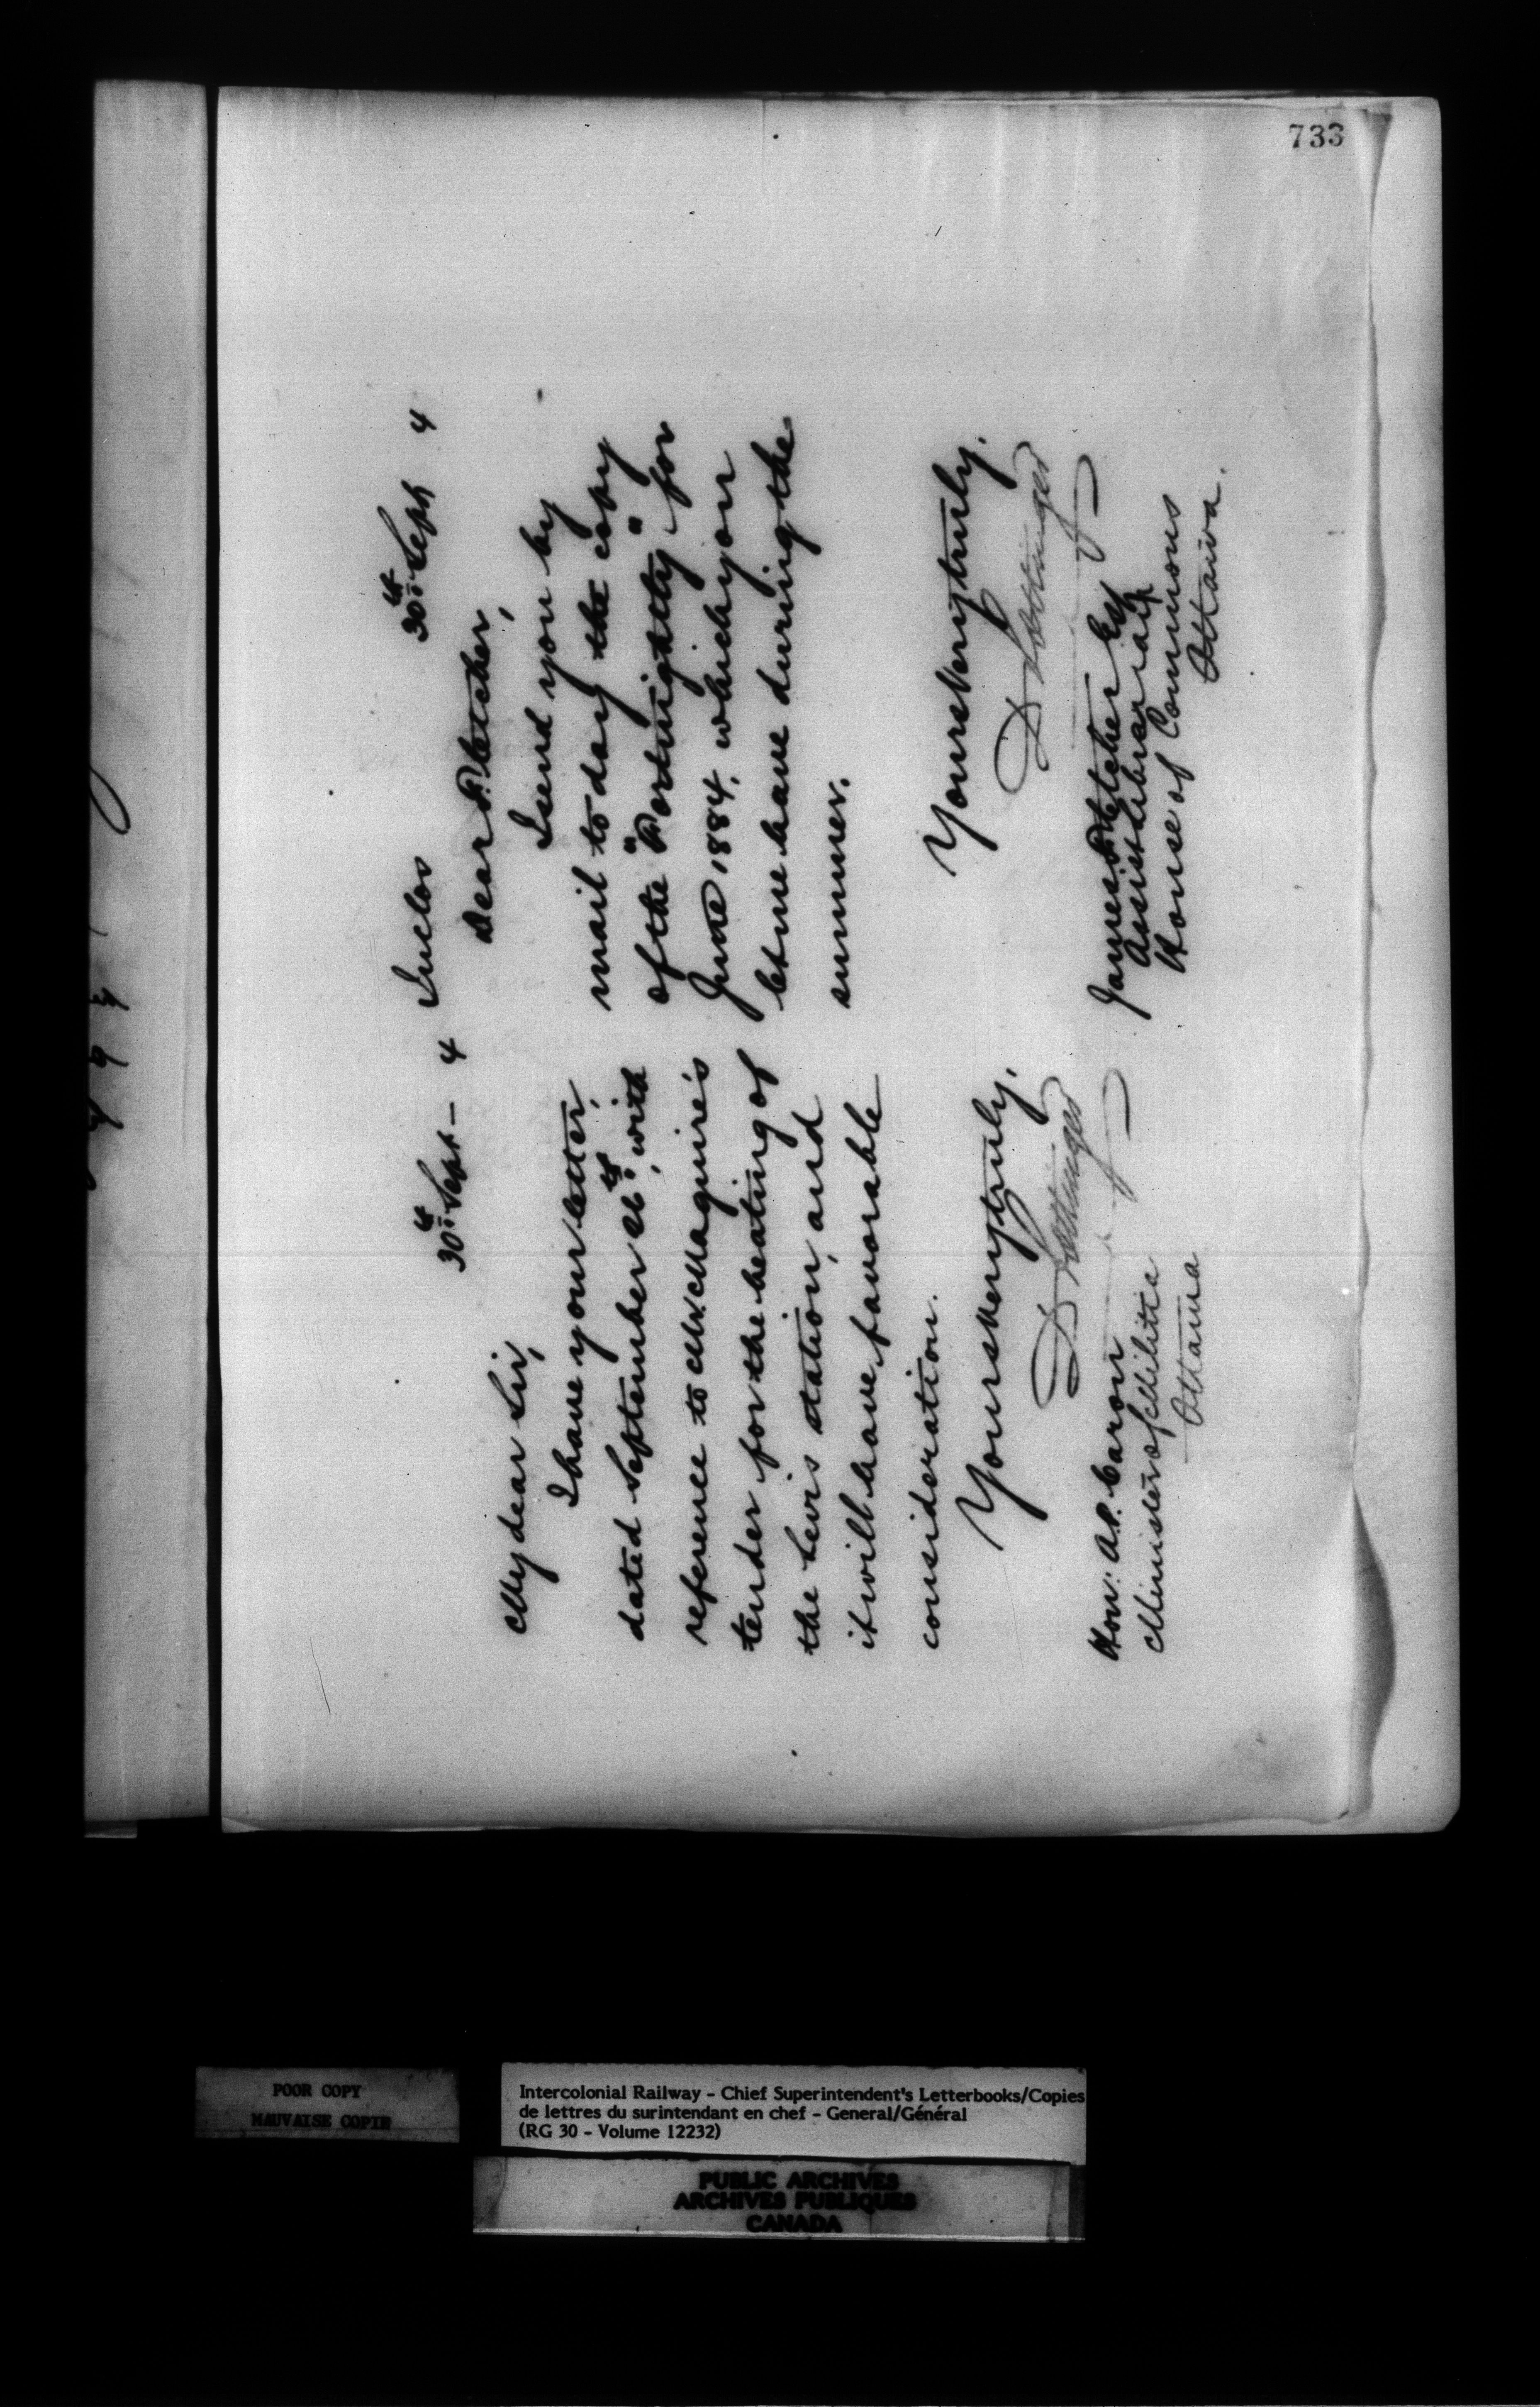 733
30th Sept - 4
My dear Sir,
I have your letter,
dated September 26th, with
reference to Mr. Maguire's
tender for the heating of
the Levis station, and
it will have favorable
consideration.
Yours very truly,
D Pottinger
Hon: A.P. Caron
Minister of Militia
Ottawa
Inclos 30th Sept 4
Dear Fletcher,
I send you by
mail to day the copy
of the "Fortnightly" for
June 1884, which you
let me have during the
summer.
Yours very truly,
D Pottinger
James Fletcher Esq
Assist Librarian
House of Commons
Ottawa.
POOR COPY
MAUVAISE COPIE
Intercolonial Railway - Chief Superintendent's Letterbooks/Copies
de lettres du surintendant en chef - General/Général
(RG 30 - Volume 12232)
PUBLIC ARCHIVES
ARCHIVES PUBLIQUES
CANADA